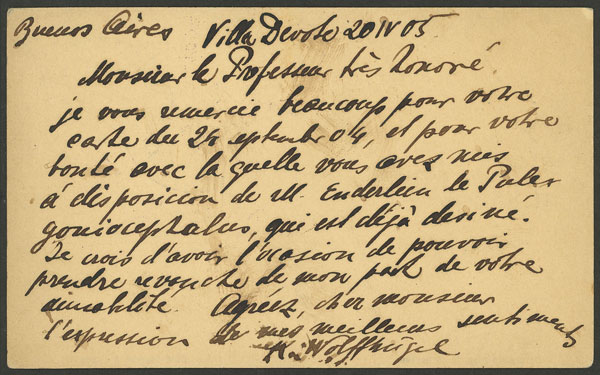 Buenos Aires Villa Devoto 20 IV 05
Monsieur le Professeur très honoré.
je vous remercie beaucoup pour votre
carte du 24 septembre 04, et pour votre
bonté avec la quelle vous avez mis
à disposicion de M. Enderlein le Pulex
goniocephalus, qui est déjà desiné.
Je crois d'avoir l'ocasion de pouvoir
prendre revanche de mon part de votre
aimabilité. Agreez, cher monsieur
l'expression de mes meilleurs sentiments
K. Wolffhügel